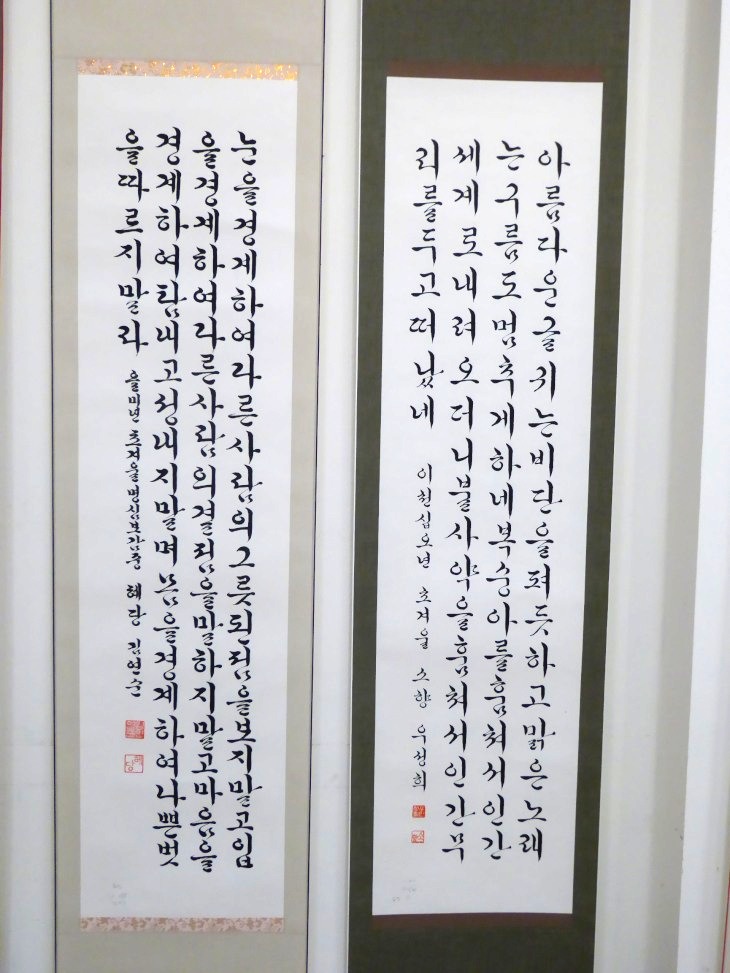 아름다운글귀는비단을펴듯하고맑은노래
는구름도멈추게하네복숭아를훔쳐서인간
세계로내려오더니불사약을훔쳐서인간무
리를두고떠났네 이천십오년 초겨울 소향
눈을경계하여다른사람의그릇된점을보지말고입
을경계하여다른사람의결점을말하지말고마음을
경계하여탐내고성내지말며몸을경계하여나쁜벗
을따르지말라 을미년 초겨울명심보감중 혜당 김연순